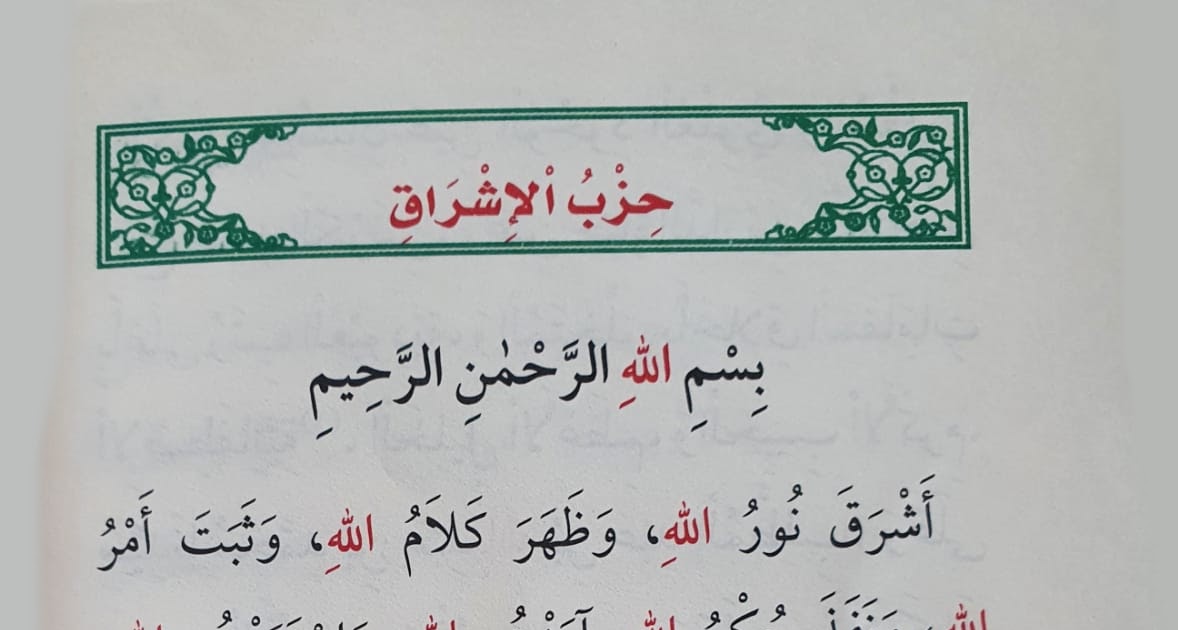 حِزْبُ الْإِشْرَاقِ
بِسْمِ اللهِ الرَّحْمٰنِ الرَّحِيمِ
أَشْرَقَ نُورُ اللهِ، وَظَهَرَ كَلَامُ اللهِ، وَثَبَتَ أَمْرُ
اللهِ، وَنَفَذَ حُكْمُ اللهِ